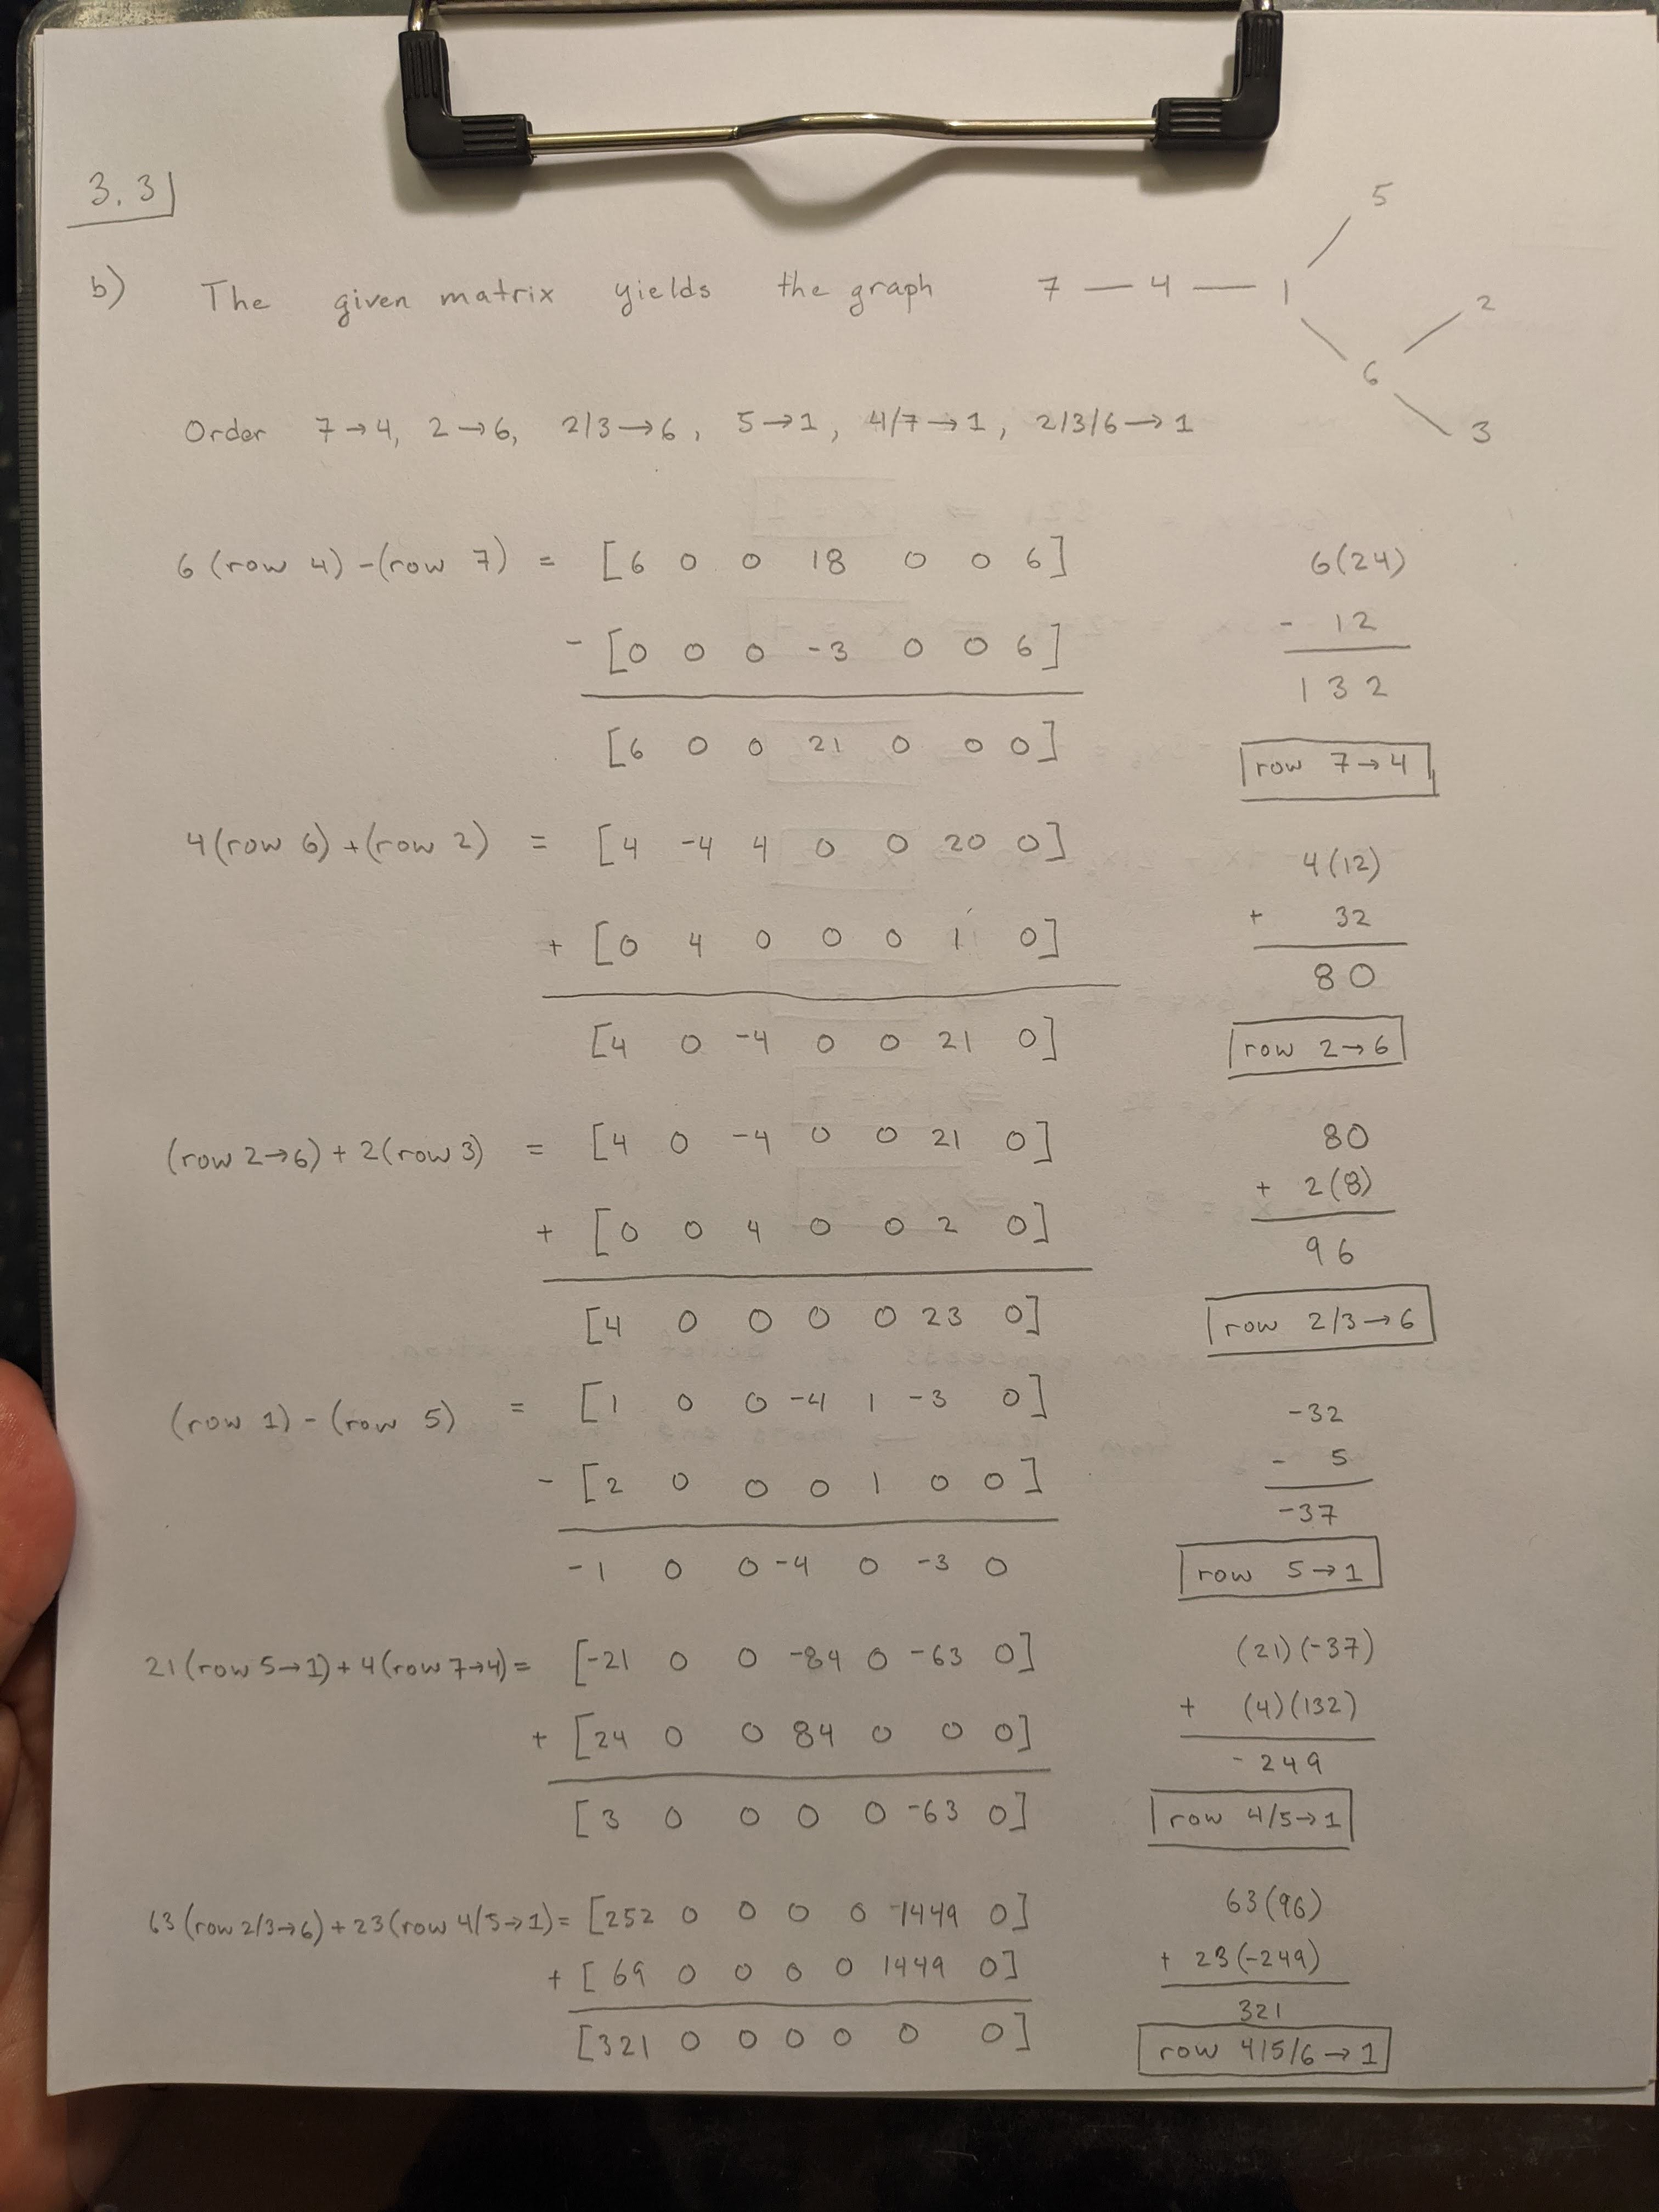 3.3
5
b) The given matrix yields the graph 7 — 4 — 1
2
6
3
Order 7→4, 2→6, 2/3→6, 5→1, 4/7→1, 2/3/6→1
6(row 4)-(row 7) = [6 0 0 18 0 0 6] 6(24)
- [0 0 0 -3 0 0 6] - 12
[6 0 0 21 0 0 0] 132
row 7→4
4(row 6)+(row 2) = [4 -4 4 0 0 20 0] 4(12)
+ [0 4 0 0 0 1 0] + 32
[4 0 -4 0 0 21 0] 80
row 2→6
(row 2→6)+2(row 3) = [4 0 -4 0 0 21 0] 80
+ [0 0 4 0 0 2 0] + 2(8)
[4 0 0 0 0 23 0] 96
row 2/3→6
(row 1)-(row 5) = [1 0 0 -4 1 -3 0] -32
- [2 0 0 0 1 0 0] - 5
-1 0 0 -4 0 -3 0 -37
row 5→1
21(row 5→1)+4(row 7→4)= [-21 0 0 -84 0 -63 0] (21)(-37)
+ [24 0 0 84 0 0 0] + (4)(132)
[3 0 0 0 0 -63 0] -249
row 4/5→1
63(row 2/3→6)+23(row 4/5→1)= [252 0 0 0 0 -1449 0] 63(96)
+ [69 0 0 0 0 1449 0] + 23(-249)
[321 0 0 0 0 0 0] 321
row 4/5/6→1